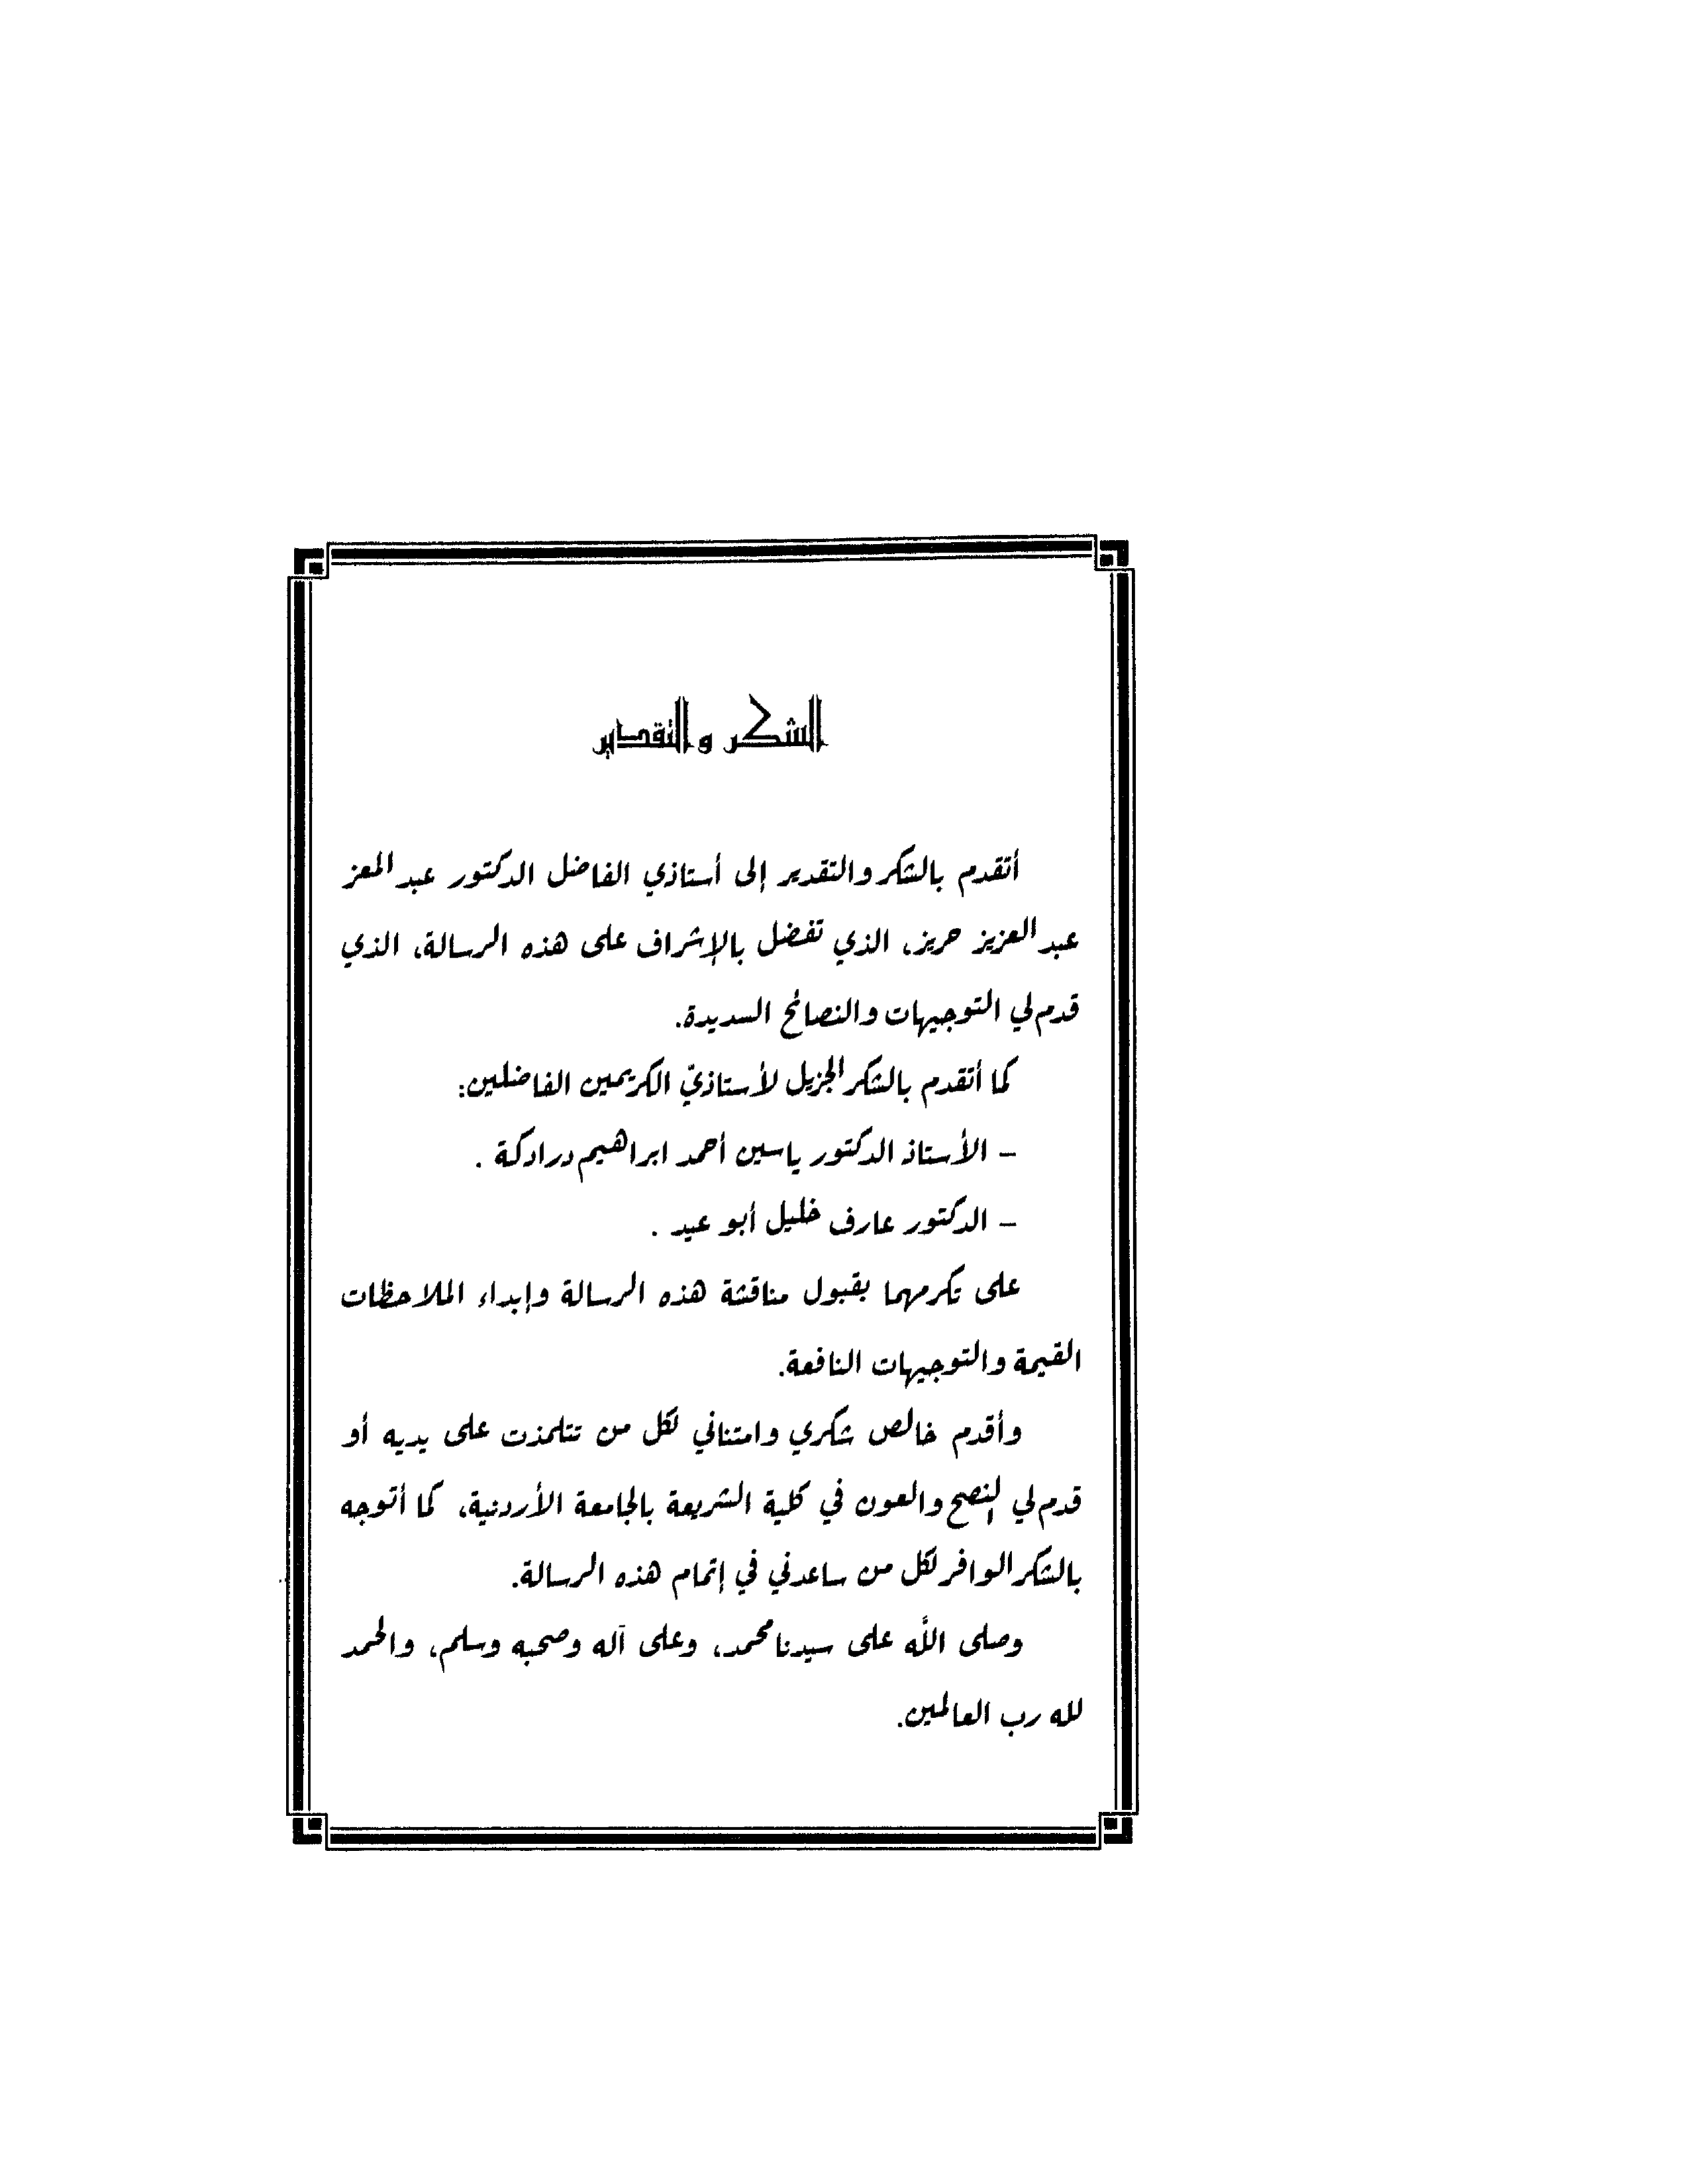 الشكر والتقدير
أتقدم بالشكر والتقدير إلى أستاذي الفاضل الدكتور عبد المعز
عبد العزيز حريز، الذي تفضل بالإشراف على هذه الرسالة، الذي
قدم لي التوجيهات والنصائح السديدة.
كما أتقدم بالشكر الجزيل لأستاذيّ الكريمين الفاضلين:
– الأستاذ الدكتور ياسين أحمد ابراهيم درادكة .
– الدكتور عارف خليل أبو عيد .
على تكرمهما بقبول مناقشة هذه الرسالة وإبداء الملاحظات
القيمة والتوجيهات النافعة.
وأقدم خالص شكري وامتناني لكل من تتلمذت على يديه أو
قدم لي النصح والعون في كلية الشريعة بالجامعة الأردنية، كما أتوجه
بالشكر الوافر لكل من ساعدني في إتمام هذه الرسالة.
وصلى الله على سيدنا محمد، وعلى آله وصحبه وسلم، والحمد
لله رب العالمين.